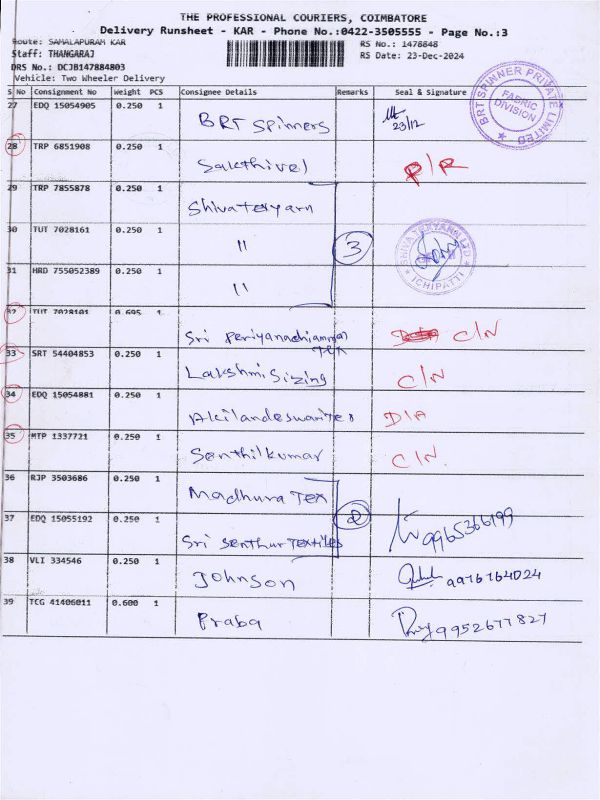 THE PROFESSIONAL COURIERS, COIMBATORE
Delivery Runsheet - KAR - Phone No.:0422-3505555 - Page No.:3
Route: SAMALAPURAM KAR
RS No.: 1478848
Staff: THANGARAJ
RS Date: 23-Dec-2024
DRS No.: DCJB147884803
Vehicle: Two Wheeler Delivery
S No Consignment No Weight PCS Consignee Details Remarks Seal & Signature
27 EDQ 15054905 0.250 1 BRT Spinners 23/12
BRT SPINNER PRIVATE LIMITED
FABRIC DIVISION
28 TRP 6851908 0.250 1 Sakthivel P/R
29 TRP 7855878 0.250 1 Shivateryarn
30 TUT 7028161 0.250 1 " 3
SHIVA TEXYARN LTD
ICHIPATTI
31 HRD 755052389 0.250 1 "
32 TUT 7028101 0.695 1 Sri Periyanachiamman Tex C/N
33 SRT 54404853 0.250 1 Lakshmi Sizing C/N
34 EDQ 15054881 0.250 1 Akilandeswaritex D/A
35 MTP 1337721 0.250 1 Senthilkumar C/N
36 RJP 3503686 0.250 1 Madhura Tex
2
37 EDQ 15055192 0.250 1 Sri Senthur Textiles 9965366199
38 VLI 334546 0.250 1 Johnson 9976764024
39 TCG 41406011 0.600 1 Praba 9952677827